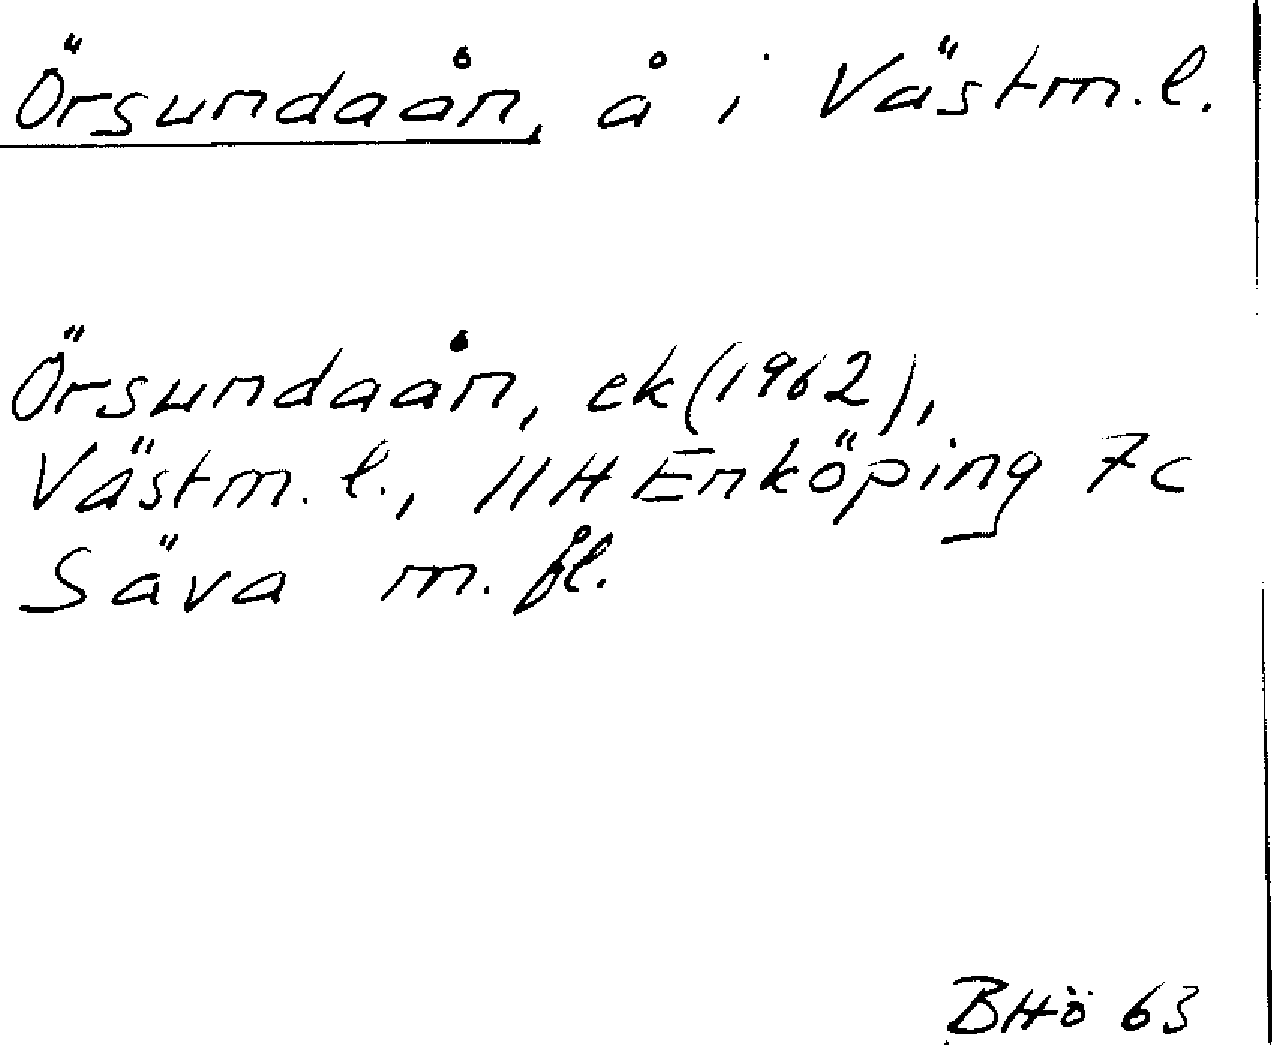 Örsundaån, å i Västm.l.
Örsundaån, ek (1962),
Västm.l., 11H Enköping 7c
Säva m.fl.
BHö 63